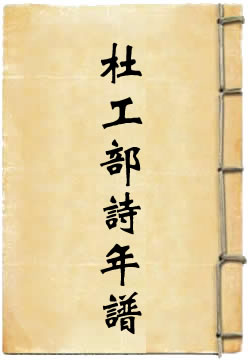 杜工部詩年譜